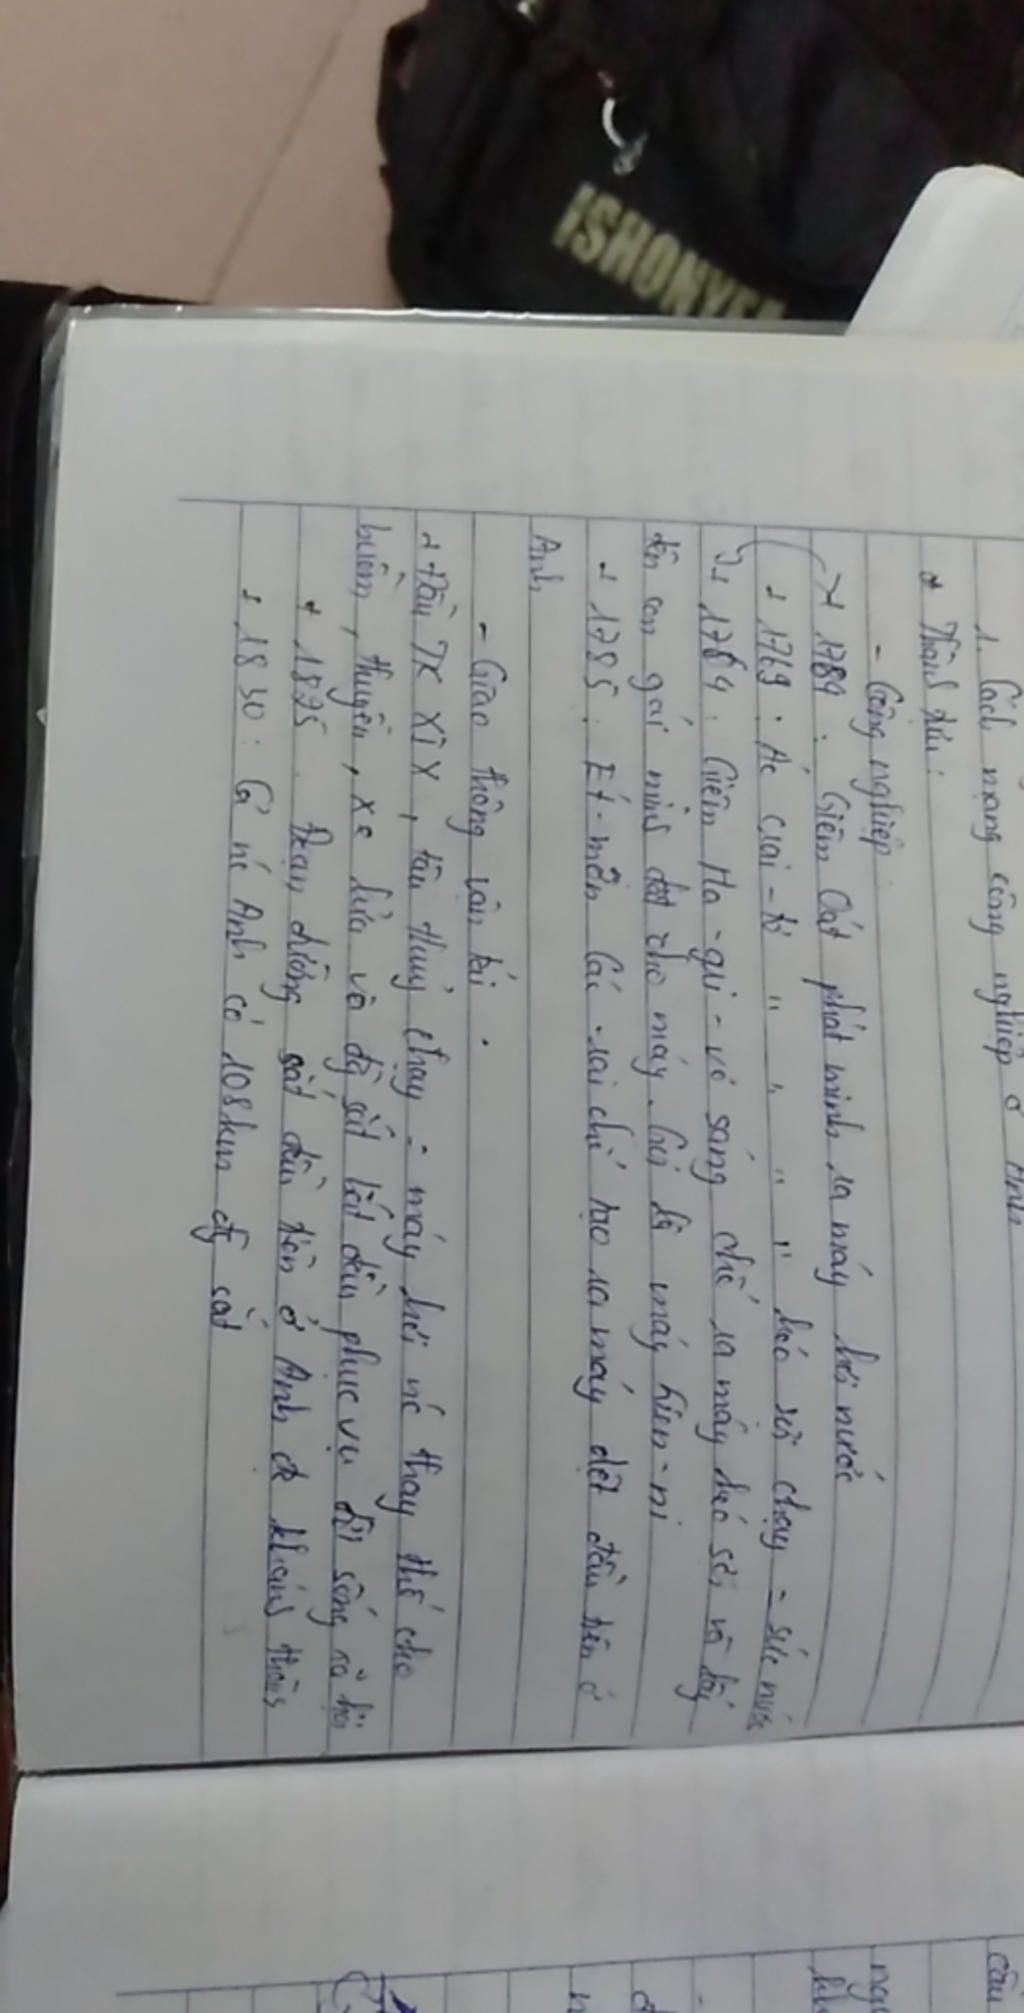 ISHONYE
1. Cách mạng công nghiệp ở Anh
* Thành tựu:
- Công nghiệp:
+ 1784: Giêm Oát phát minh ra máy hơi nước
+ 1769: Ác crai-tơ " " " " kéo sợi chạy = sức nước
+ 1764: Giêm Ha-gri-vơ sáng chế ra máy kéo sợi và lấy
tên con gái mình đặt cho máy. Gọi là máy hien-ni
+ 1785: Ét-mơn Các-rai chế tạo ra máy dệt đầu tiên ở
Anh
- Giao thông vận tải.
+ Đầu TK XIX, tàu thuỷ chạy = máy hơi nc thay thế cho
buồm, thuyền, xe lửa và đg sắt bắt đầu phục vụ đời sống xã hội
+ 1825. Đoạn đường sắt đầu tiên ở Anh đc khánh thành
+ 1830: Cả nc Anh có 108km đg sắt
câu
ng